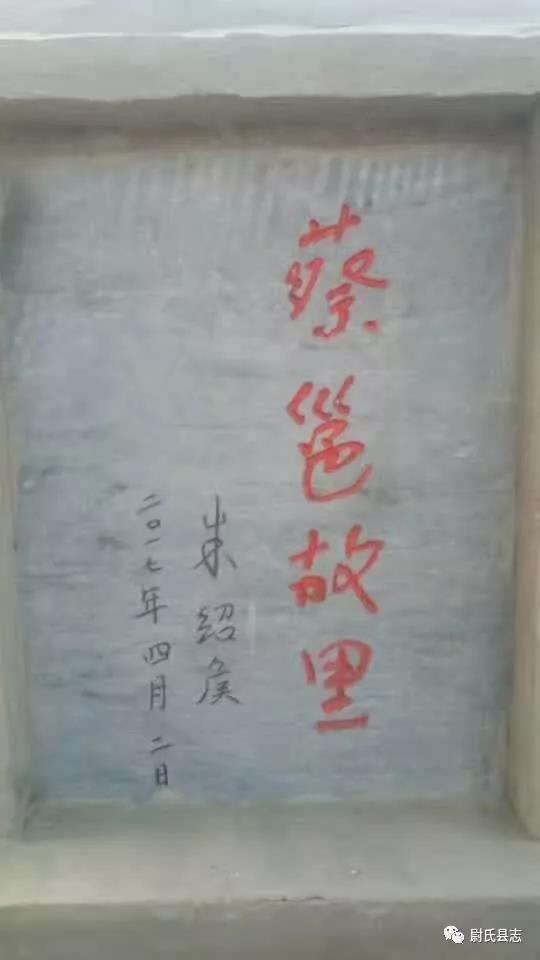 蔡邕故里
朱绍侯
二〇一七年四月二日
尉氏县志